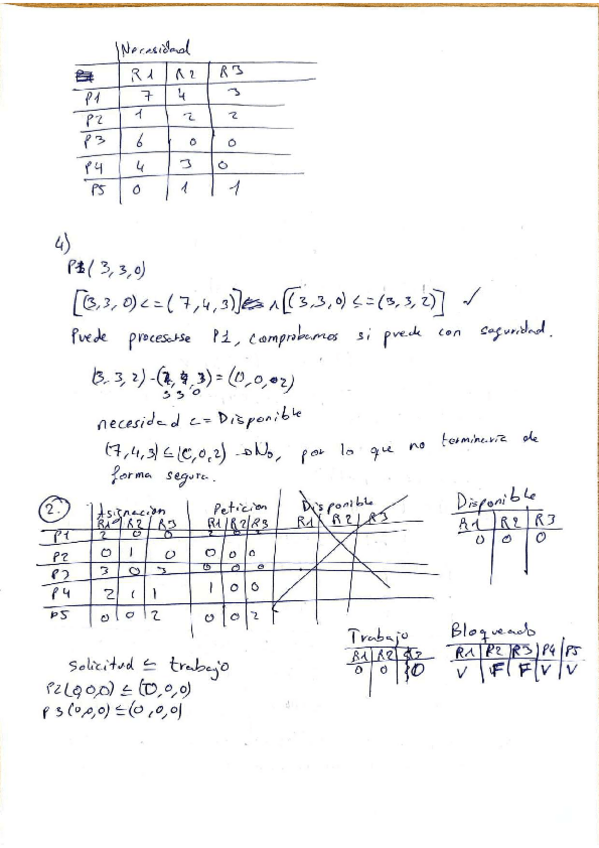 Necesidad
R1 R2 R3
P1 7 4 3
P2 1 2 2
P3 6 0 0
P4 4 3 0
P5 0 1 1
4)
P1(3,3,0)
[(3,3,0)<=(7,4,3)] ∧ [(3,3,0)<=(3,3,2)] ✓
Puede procesarse P1, comprobamos si puede con seguridad.
(3,3,2)-(3,3,0)=(0,0,2)
necesidad <= Disponible
(7,4,3)≤(0,0,2) → No, por lo que no terminaria de
forma segura.
2.
Asignacion Peticion Disponible Disponible
R1 R2 R3 R1 R2 R3 R1 R2 R3 R1 R2 R3
P1 2 0 0 2 0 2 0 0 0
P2 0 1 0 0 0 0
P3 3 0 3 0 0 0
P4 2 1 1 1 0 0
P5 0 0 2 0 0 2
Trabajo Bloqueado
R1 R2 R3 R1 R2 R3 P4 P5
0 0 0 V F F V V
Solicitud ≤ trabajo
P2(0,0,0)≤(0,0,0)
P3(0,0,0)≤(0,0,0)